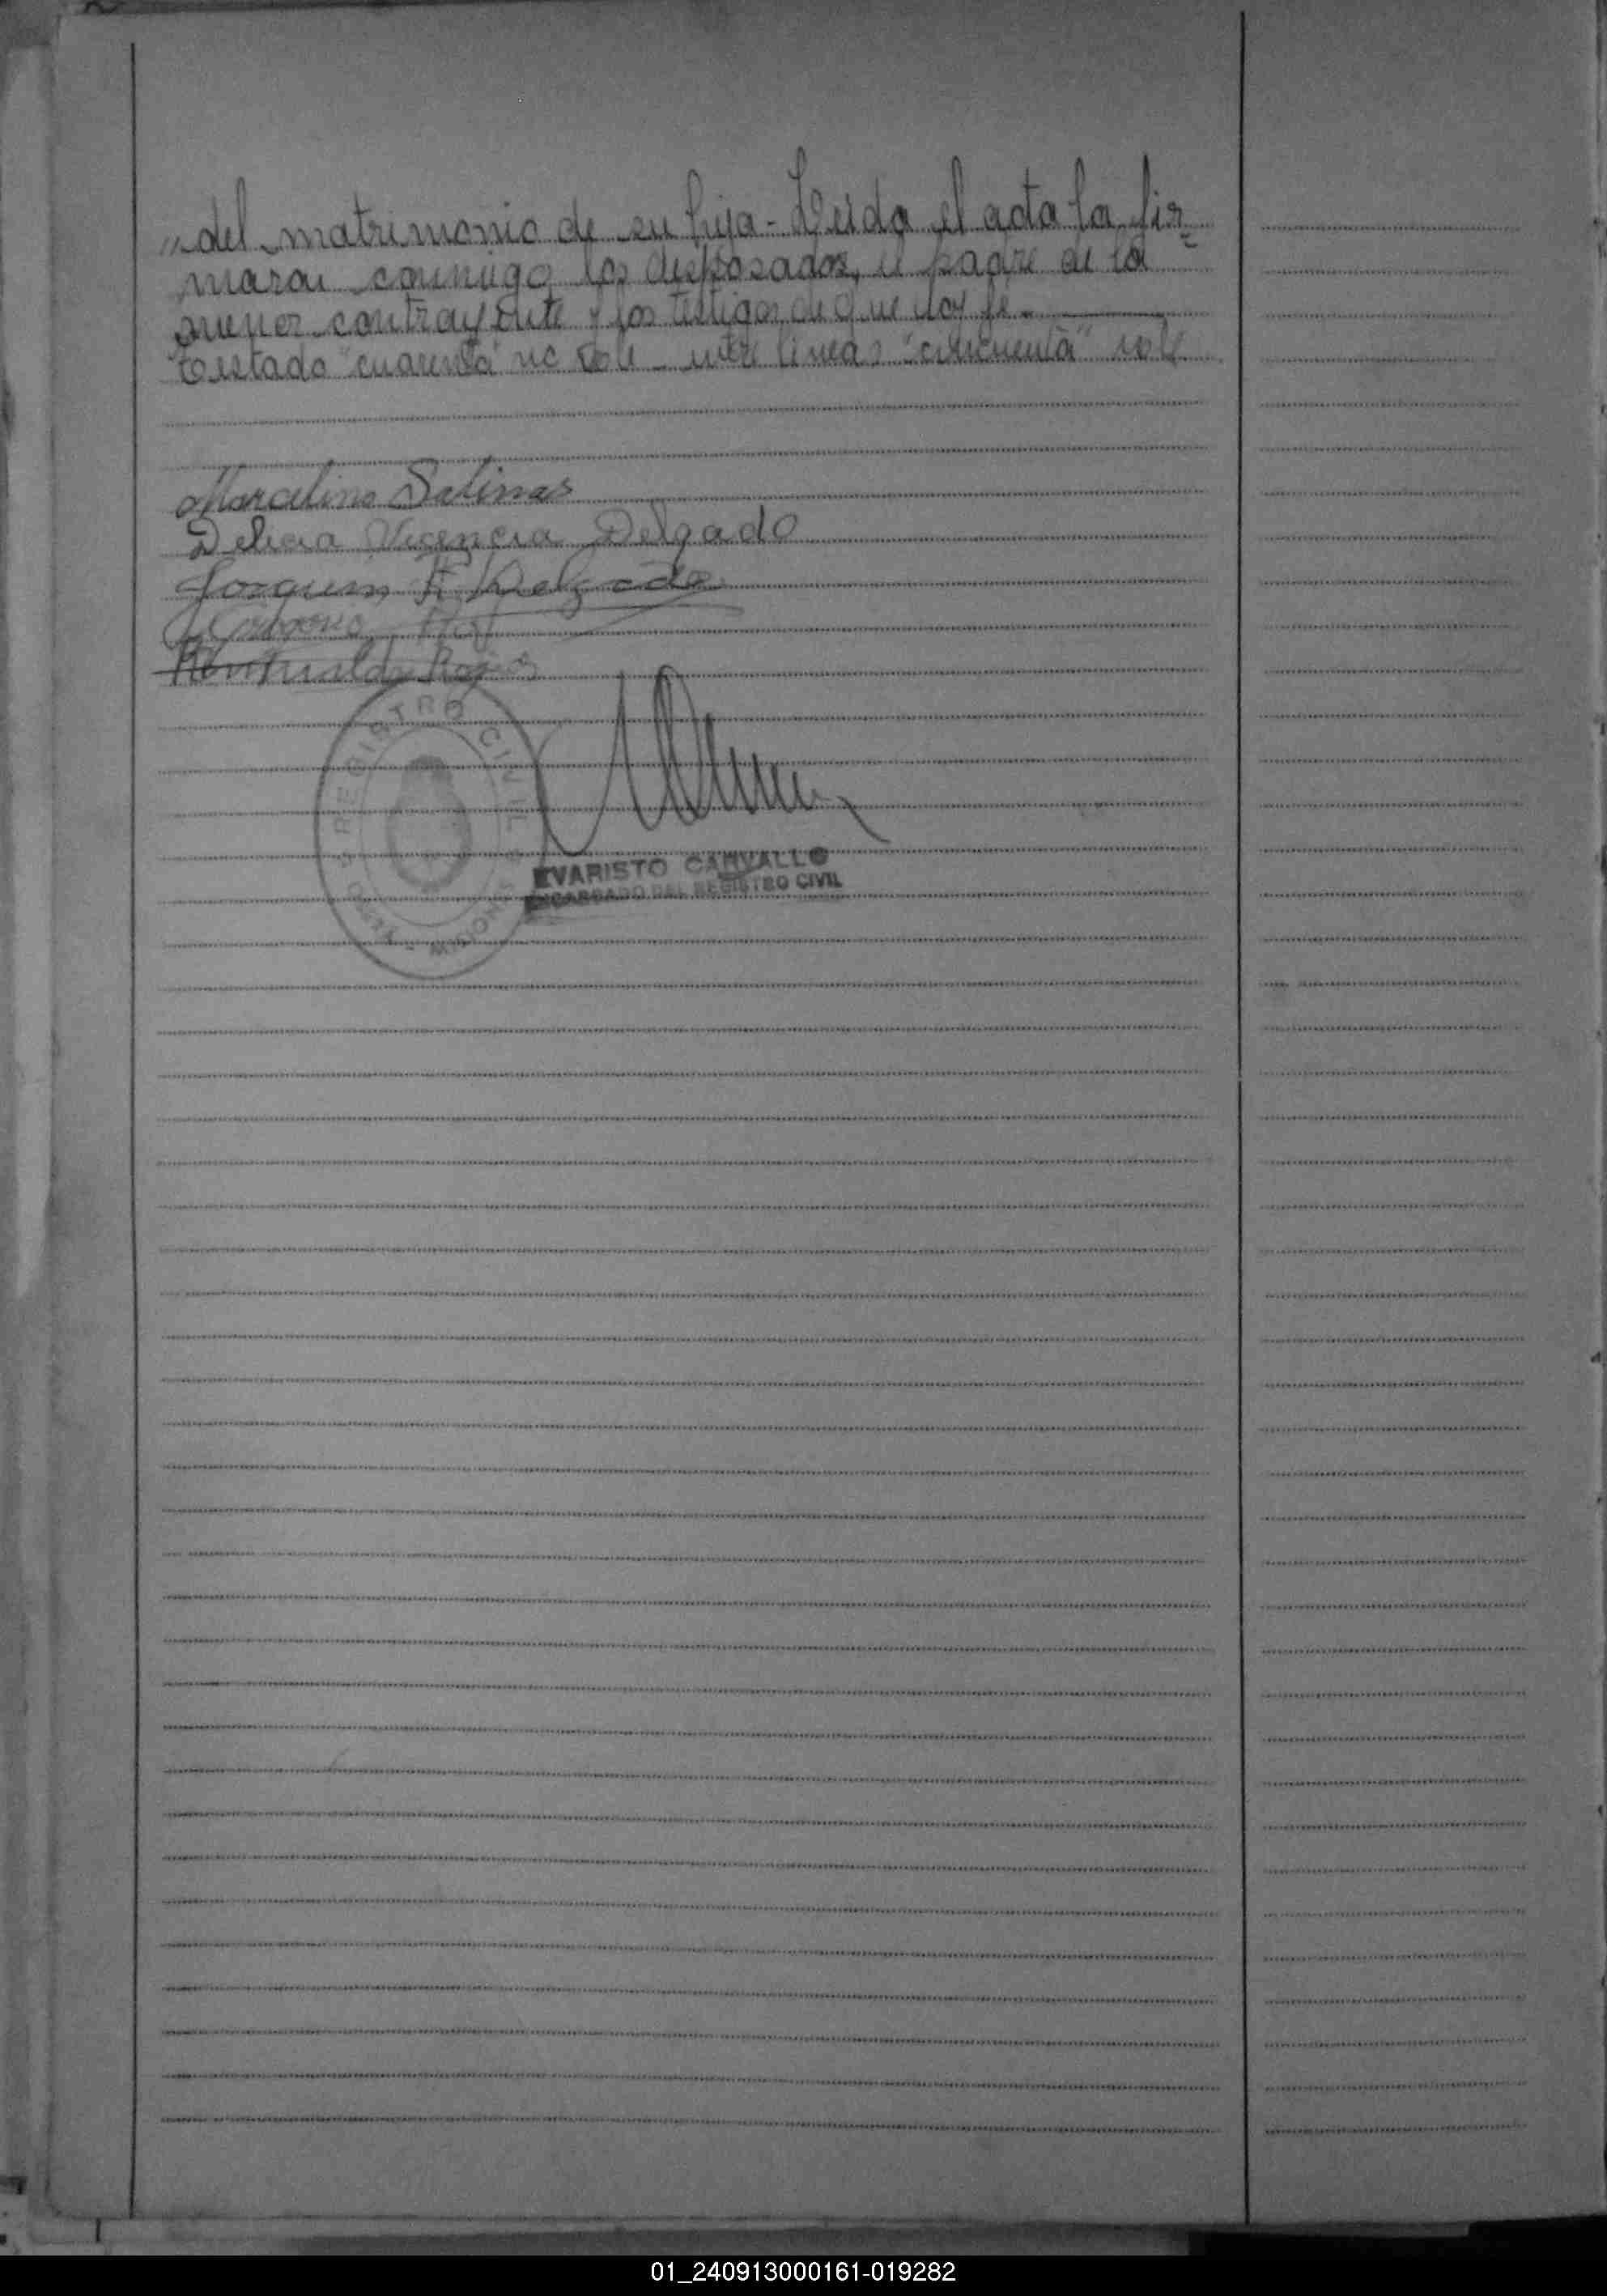 "del matrimonio de su hija - Leida el acta la fir-
maron conmigo los desposados, el padre de la
menor contrayente y los testigos de que doy fe.
Testado "cuarenta" no vale - entre lineas "cincuenta" vale
Marcelino Salinas
Delicia Vicencia Delgado
Joaquin F. Delgado
Rojas
REGISTRO CIVIL
EVARISTO CARVALLO
ENCARGADO DEL REGISTRO CIVIL
01_240913000161-019282